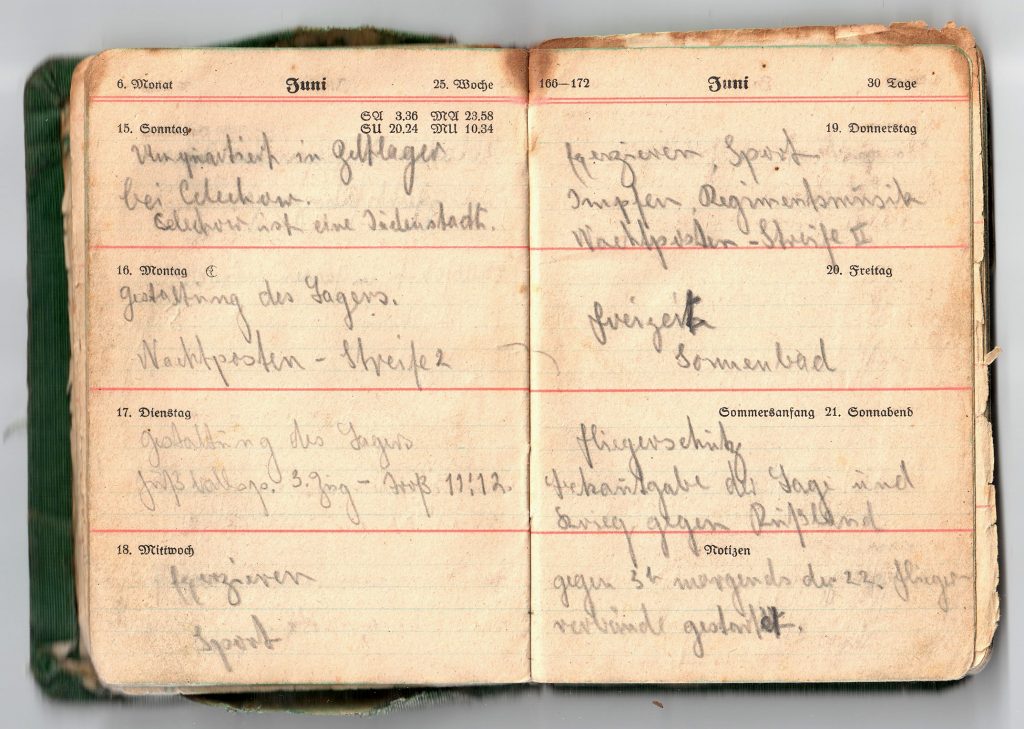 6. Monat Juni 25. Woche
15. Sonntag SA 3.36 MA 23.58
SU 20.24 MU 10.34
Umquartiert in Zeltlager
bei Celechow.
Celechow ist eine Judenstadt.
16. Montag
Gestaltung des Lagers.
Nachtposten - Streife 2
17. Dienstag
Gestaltung des Lagers
Fußballsp. 3. Zug - Troß 11:12.
18. Mittwoch
Exerzieren
Sport
166—172 Juni 30 Tage
19. Donnerstag
Exerzieren, Sport
Impfen, Regimentsmusik
Nachtposten - Streife II
20. Freitag
Freizeit
Sonnenbad
Sommersanfang 21. Sonnabend
Fliegerschutz
der Lage und
Krieg gegen Rußland
Notizen
gegen 3h morgends den 22. Flieger-
verbände gestartet.